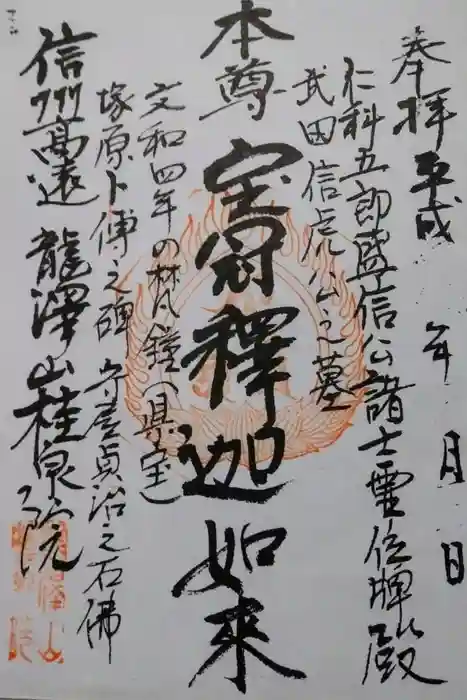 奉拝 平成 年 月 日
仁科五郎盛信公諸士霊位牌殿
武田信虎公之墓
本尊 宝冠釋迦如来
文和四年の梵鐘(県宝)
塚原卜傳之碑 守屋貞治之石佛
信州高遠 龍澤山桂泉院